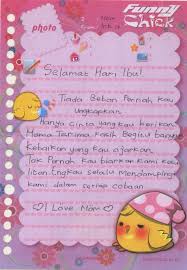 Funny
Chick
photo
Selamat Hari Ibu!
Tiada Beban Pernah Kau
Ungkapkan
Hanya Cinta yang kau berikan
Mama Terima kasih Begitu banyak
Kebaikan yang Kau ajarkan
Tak Pernah Kau biarkan Kami
Selalu Mendampingi
kami dalam setiap cobaan
I Love Mom